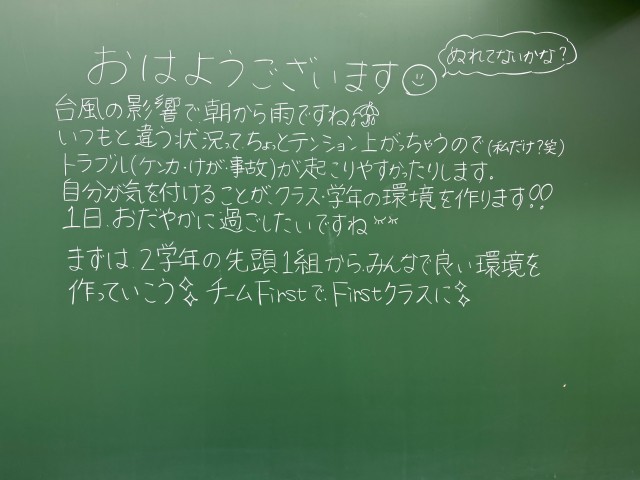 おはようございます
ぬれてないかな?
台風の影響で朝から雨ですね
いつもと違う状況ってちょっとテンション上がっちゃうので(私だけ?笑)
トラブル(ケンカ・けが・事故)が起こりやすかったりします。
自分が気を付けることが、クラス・学年の環境を作ります!!
1日、おだやかに過ごしたいですね
まずは、2学年の先頭1組から、みんなで良い環境を
作っていこう チームFirstで、Firstクラスに